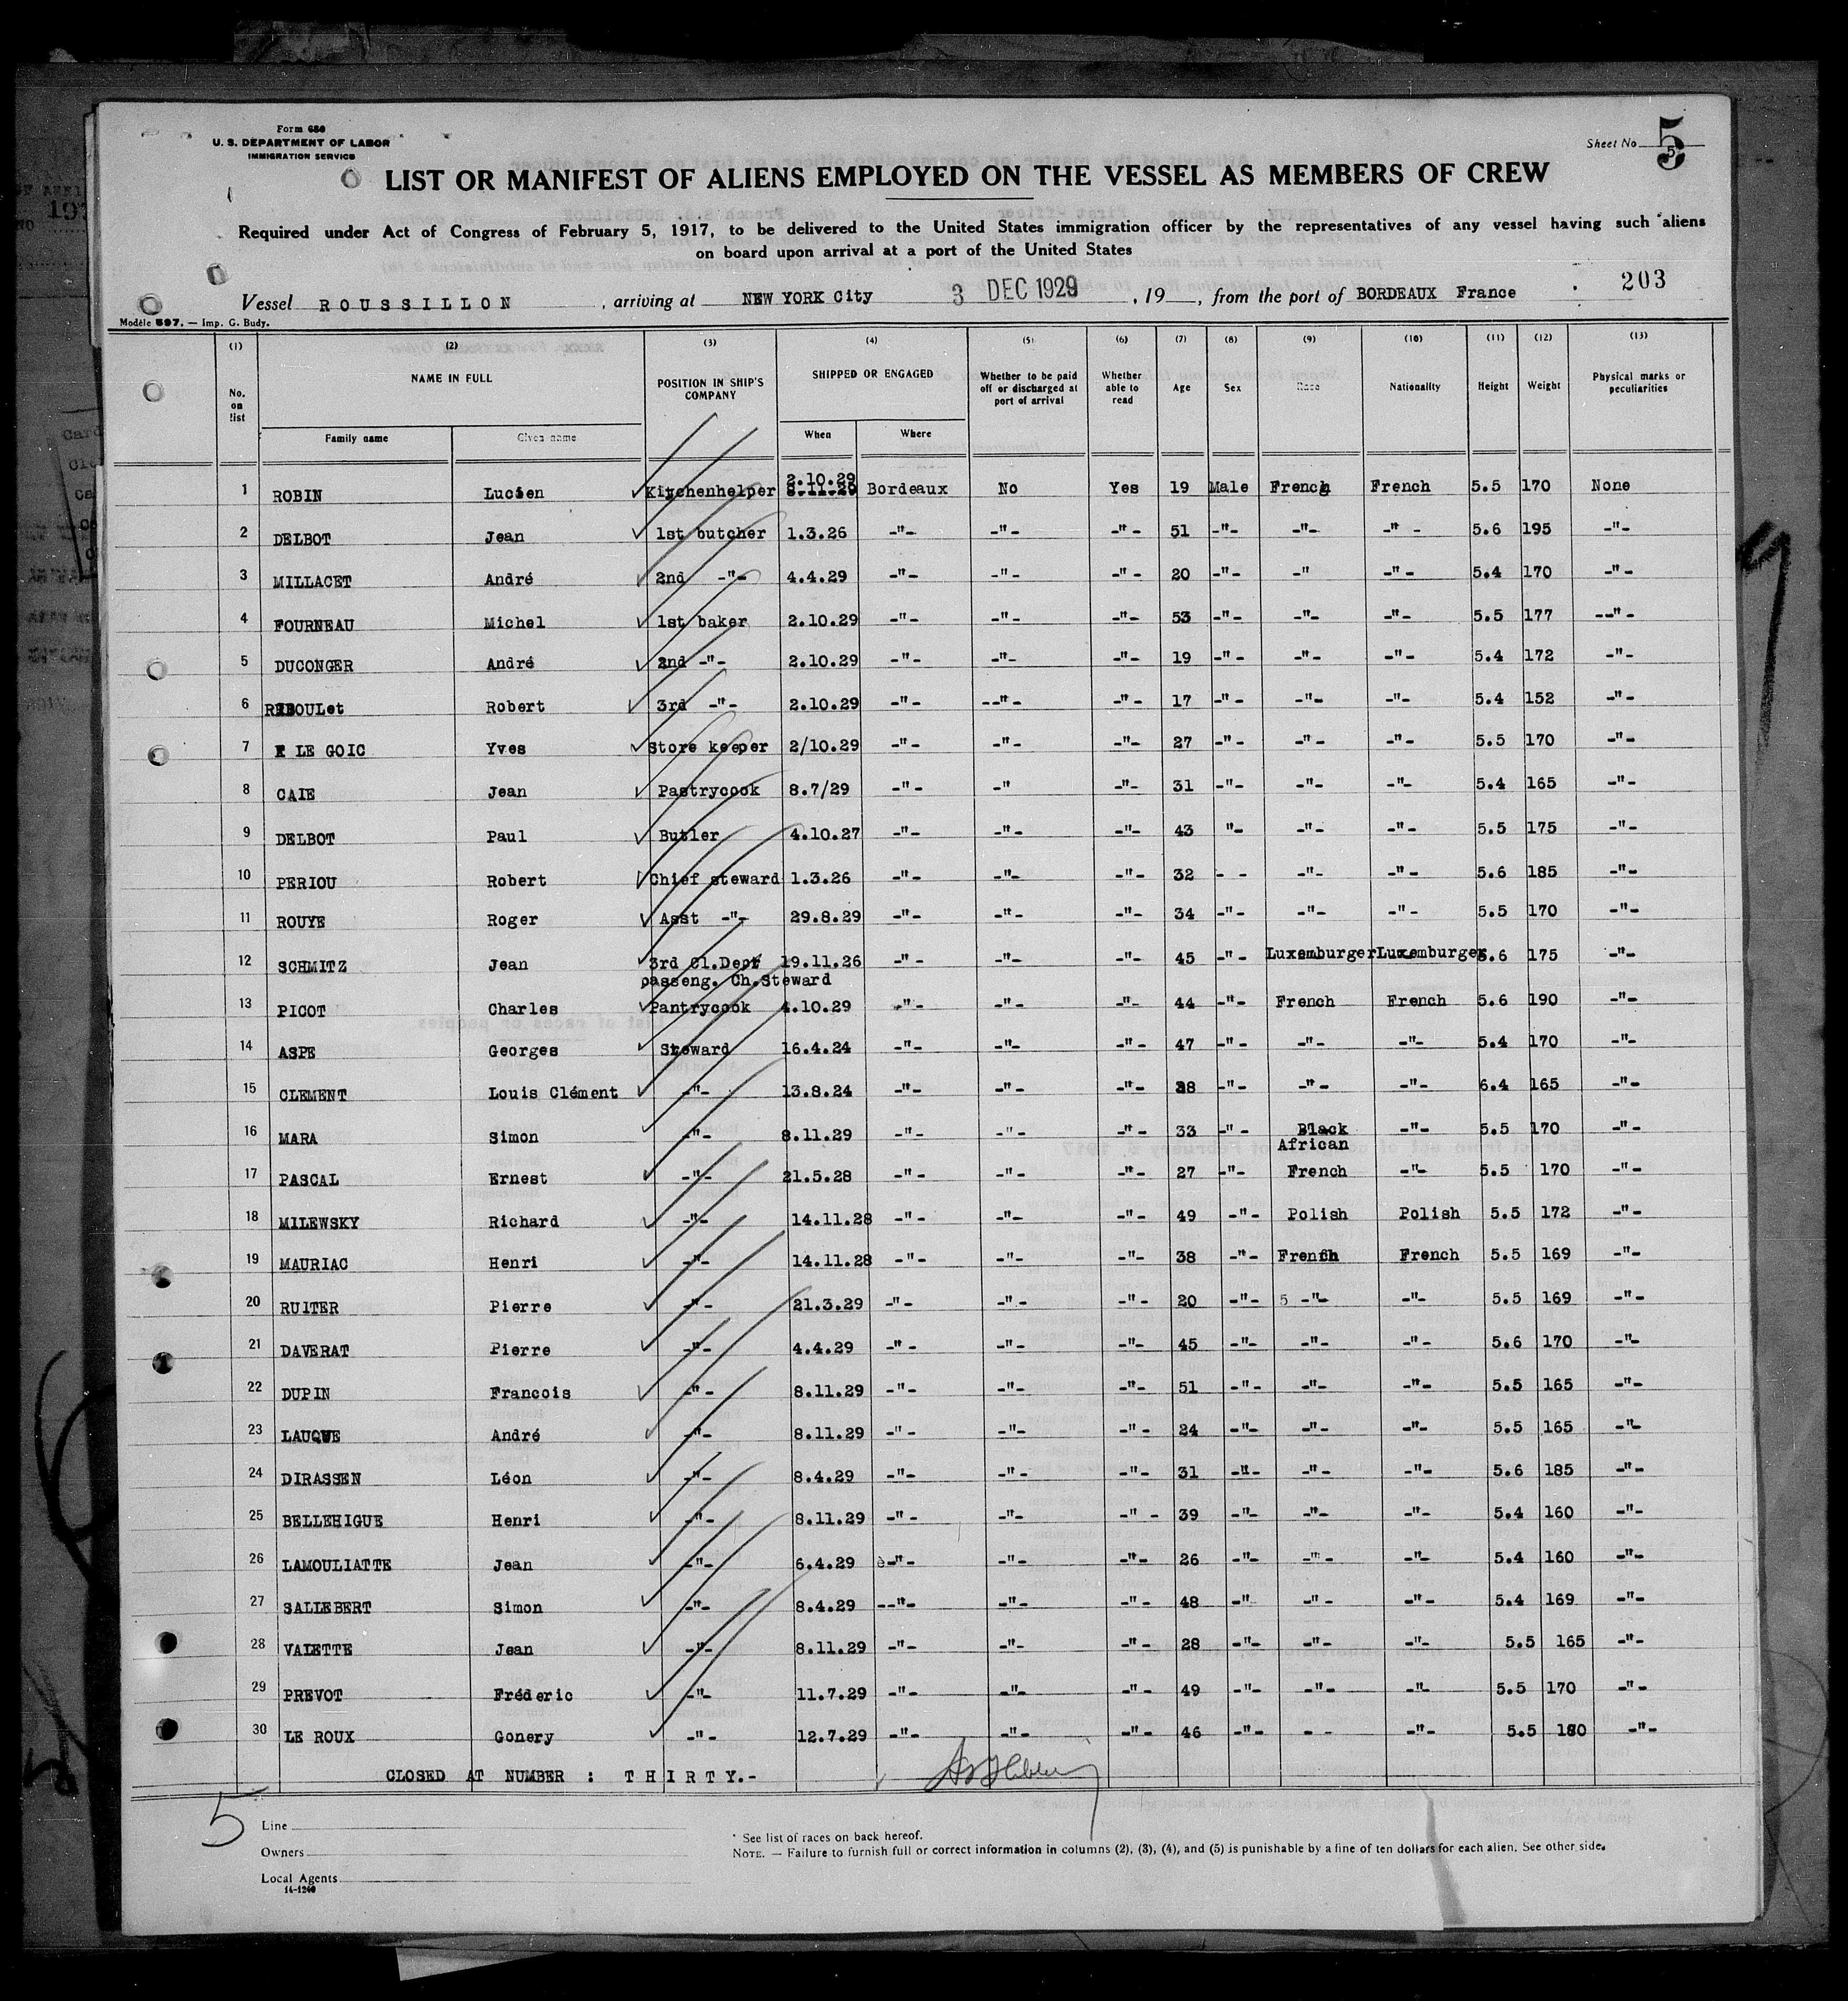 Form 680
U. S. DEPARTMENT OF LABOR
IMMIGRATION SERVICE
Sheet No 5
5
LIST OR MANIFEST OF ALIENS EMPLOYED ON THE VESSEL AS MEMBERS OF CREW
Required under Act of Congress of February 5, 1917, to be delivered to the United States immigration officer by the representatives of any vessel having such aliens
on board upon arrival at a port of the United States
Vessel ROUSSILLON, arriving at NEW YORK City 3 DEC 1929, 19, from the port of BORDEAUX France 203
Modèle 597. — Imp. G. Budy.
(1) (2) (3) (4) (5) (6) (7) (8) (9) (10) (11) (12) (13)
No. on list NAME IN FULL POSITION IN SHIP'S COMPANY SHIPPED OR ENGAGED Whether to be paid off or discharged at port of arrival Whether able to read Age Sex Race Nationality Height Weight Physical marks or peculiarities
Family name Given name When Where
1 ROBIN Lucien Kitchenhelper 2.10.29 8.11.29 Bordeaux No Yes 19 Male French French 5.5 170 None
2 DELBOT Jean 1st butcher 1.3.26 -"- -"- -"- 51 -"- -"- -" - 5.6 195 -"-
3 MILLACET André 2nd -"- 4.4.29 -"- -"- -"- 20 -"- -" -"- 5.4 170 -"-
4 FOURNEAU Michel 1st baker 2.10.29 -"- -"- -"- 53 -"- -"- -"- 5.5 177 --"-
5 DUCONGER André 2nd -"- 2.10.29 -"- -"- -"- 19 -"- -"- -"- 5.4 172 -"-
6 REBOULet Robert 3rd -"- 2.10.29 -"- --"- -"- 17 -"- -"- -"- 5.4 152 -"-
7 LE GOIC Yves Store keeper 2/10.29 -"- -"- -"- 27 -"- -"- -"- 5.5 170 -"-
8 CAIE Jean Pastrycook 8.7/29 -"- -" -"- 31 -"- -"- -"- 5.4 165 -"-
9 DELBOT Paul Butler 4.10.27 -"- -"- -"- 43 "- -"- -"- 5.5 175 -"-
10 PERIOU Robert Chief steward 1.3.26 -"- -"- -"- 32 - - -"- -"- 5.6 185 -"-
11 ROUYE Roger Asst -"- 29.8.29 -"- -"- -"- 34 -"- -"- -"- 5.5 170 -"-
12 SCHMITZ Jean 3rd Cl.Dept 19.11.26 -"- -"- -"- 45 -"- Luxemburger Luxemburger 5.6 175 -"-
passeng. Ch.Steward
13 PICOT Charles Pantrycook 4.10.29 -"- -"- -"- 44 -"- French French 5.6 190 -"-
14 ASPE Georges Steward 16.4.24 -"- -"- -"- 47 -"- -"- -"- 5.4 170 -"-
15 CLEMENT Louis Clément -"- 13.8.24 -"- -"- -"- 38 -"- -"- -"- 6.4 165 -"-
16 MARA Simon -"- 8.11.29 -"- -"- -"- 33 -"- Black -"- 5.5 170 -"-
African
17 PASCAL Ernest -"- 21.5.28 -"- -"- -"- 27 -"- French -"- 5.5 170 -"-
18 MILEWSKY Richard -"- 14.11.28 -"- -"- -"- 49 -"- Polish Polish 5.5 172 -"-
19 MAURIAC Henri -"- 14.11.28 -"- -"- -"- 38 -"- French French 5.5 169 -"-
20 RUITER Pierre -"- 21.3.29 -"- -"- -"- 20 -"- 5 -"- -"- 5.5 169 -"-
21 DAVERAT Pierre -"- 4.4.29 -"- -"- -"- 45 -"- -"- -"- 5.6 170 -"-
22 DUPIN Francois -"- 8.11.29 -"- -"- -"- 51 -"- -"- -"- 5.5 165 -"-
23 LAUQUE André -"- 8.11.29 -"- -"- -"- 24 -"- -"- -"- 5.5 165 -"-
24 DIRASSEN Léon -"- 8.4.29 -"- -"- -"- 31 -"- -"- -"- 5.6 185 -"-
25 BELLEHIGUE Henri -"- 8.11.29 -"- -"- -" - 39 -"- -"- -"- 5.4 160 -"-
26 LAMOULIATTE Jean -"- 6.4.29 è-"- -"- -"- 26 -"- -"- -"- 5.4 160 -"-
27 SALLEBERT Simon -"- 8.4.29 --"- -"- -"- 48 -"- -"- -"- 5.4 169 -"-
28 VALETTE Jean -"- 8.11.29 -"- -"- -"- 28 -"- -"- -"- 5.5 165 -"-
29 PREVOT Fréderic -"- 11.7.29 -"- -"- -"- 49 -"- -"- -"- 5.5 170 -"-
30 LE ROUX Gonery -"- 12.7.29 -"- -"- -"- 46 -"- - - -"- 5.5 180 -"-
CLOSED AT NUMBER : THIRTY.-
5
Line
Owners
Local Agents
14-1240
* See list of races on back hereof.
NOTE. — Failure to furnish full or correct information in columns (2), (3), (4), and (5) is punishable by a fine of ten dollars for each alien. See other side.